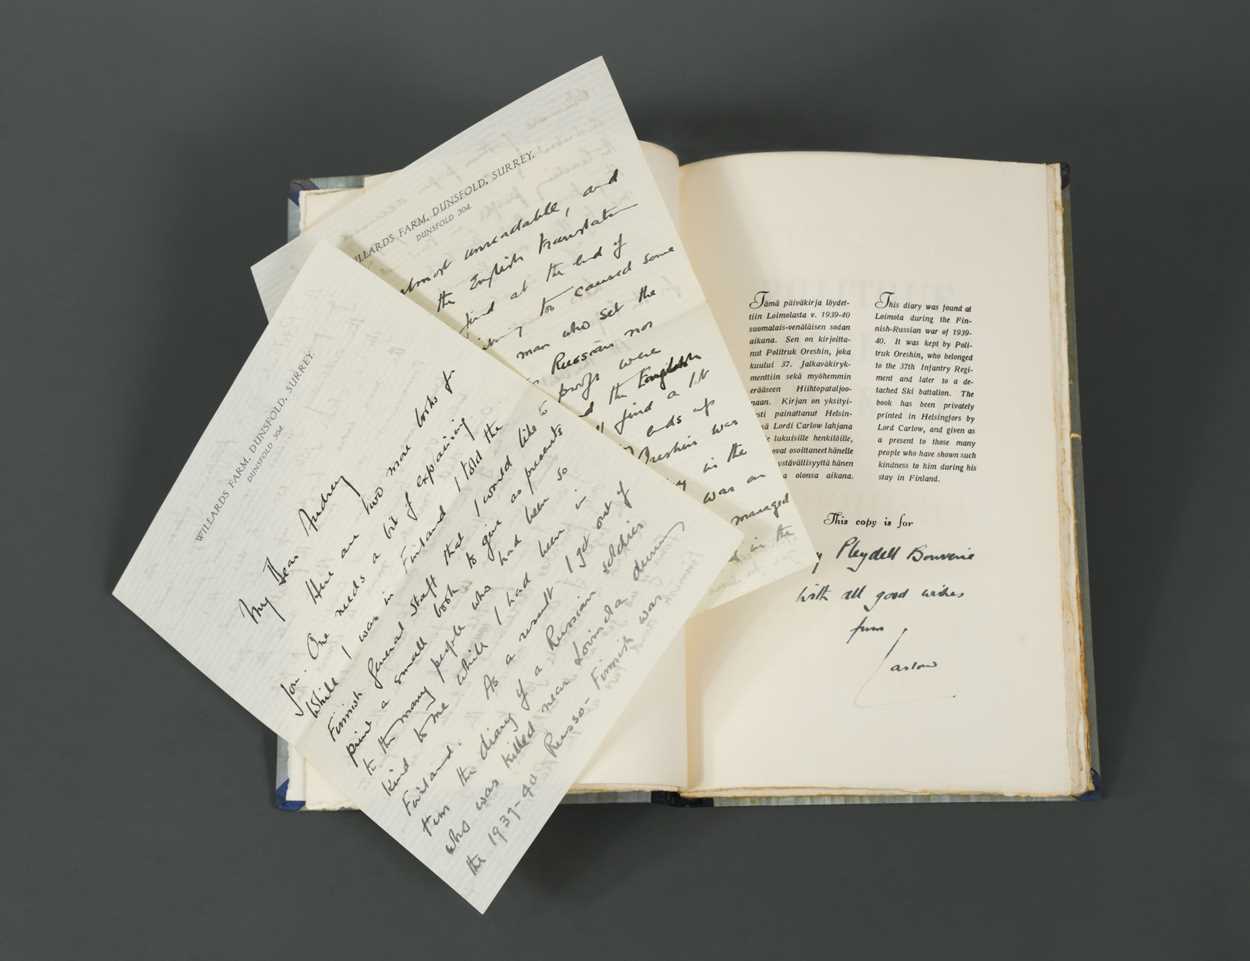 WILLARDS FARM, DUNSFOLD, SURREY.
DUNSFOLD 304.
My Dear Audrey
Here are two more books for
you. One needs a bit of explaining
While I was in Finland I told the
Finnish General Staff that I would like to
print a small book to give as presents
to the many people who had been so
kind to me while I had been in
Finland. As a result I got out of
them the diary of a Russian soldier
who was killed near Loimola during
the 1939-40 Russo-Finnish war
WILLARDS FARM, DUNSFOLD, SURREY.
DUNSFOLD 304.
almost unreadable, and
the English translation
find at the end of
too caused some
man who set the
Russian nor
proofs were
the English
find a bit
ends up
Oreshin was
in the
was an
managed
in the
Tämä päiväkirja löydet-
tiin Loimolasta v. 1939-40
suomalais-venäläisen sodan
aikana. Sen on kirjoitta-
nut Politruk Oreshin, joka
kuului 37. Jalkaväkiryk-
menttiin sekä myöhemmin
erääseen Hiihtopataljoo-
naan. Kirjan on yksityi-
sti painattanut Helsin-
ä Lordi Carlow lahjana
lukuisille henkilöille,
ovat osoittaneet hänelle
ystävällisyyttä hänen
a olonsa aikana.
This diary was found at
Loimola during the Fin-
nish-Russian war of 1939-
40. It was kept by Poli-
truk Oreshin, who belonged
to the 37th Infantry Regi-
ment and later to a de-
tached Ski battalion. The
book has been privately
printed in Helsingfors by
Lord Carlow, and given as
a present to those many
people who have shown such
kindness to him during his
stay in Finland.
This copy is for
y Pleydell Bouverie
With all good wishes
from
Carlow